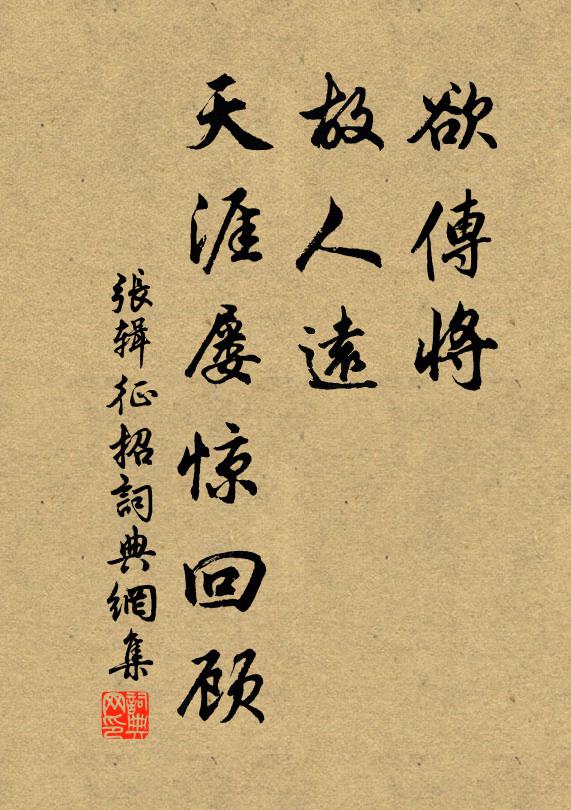 欲傳將
故人遠
天涯屡惊回顾
張辑征招詞典網集
詞典
网印